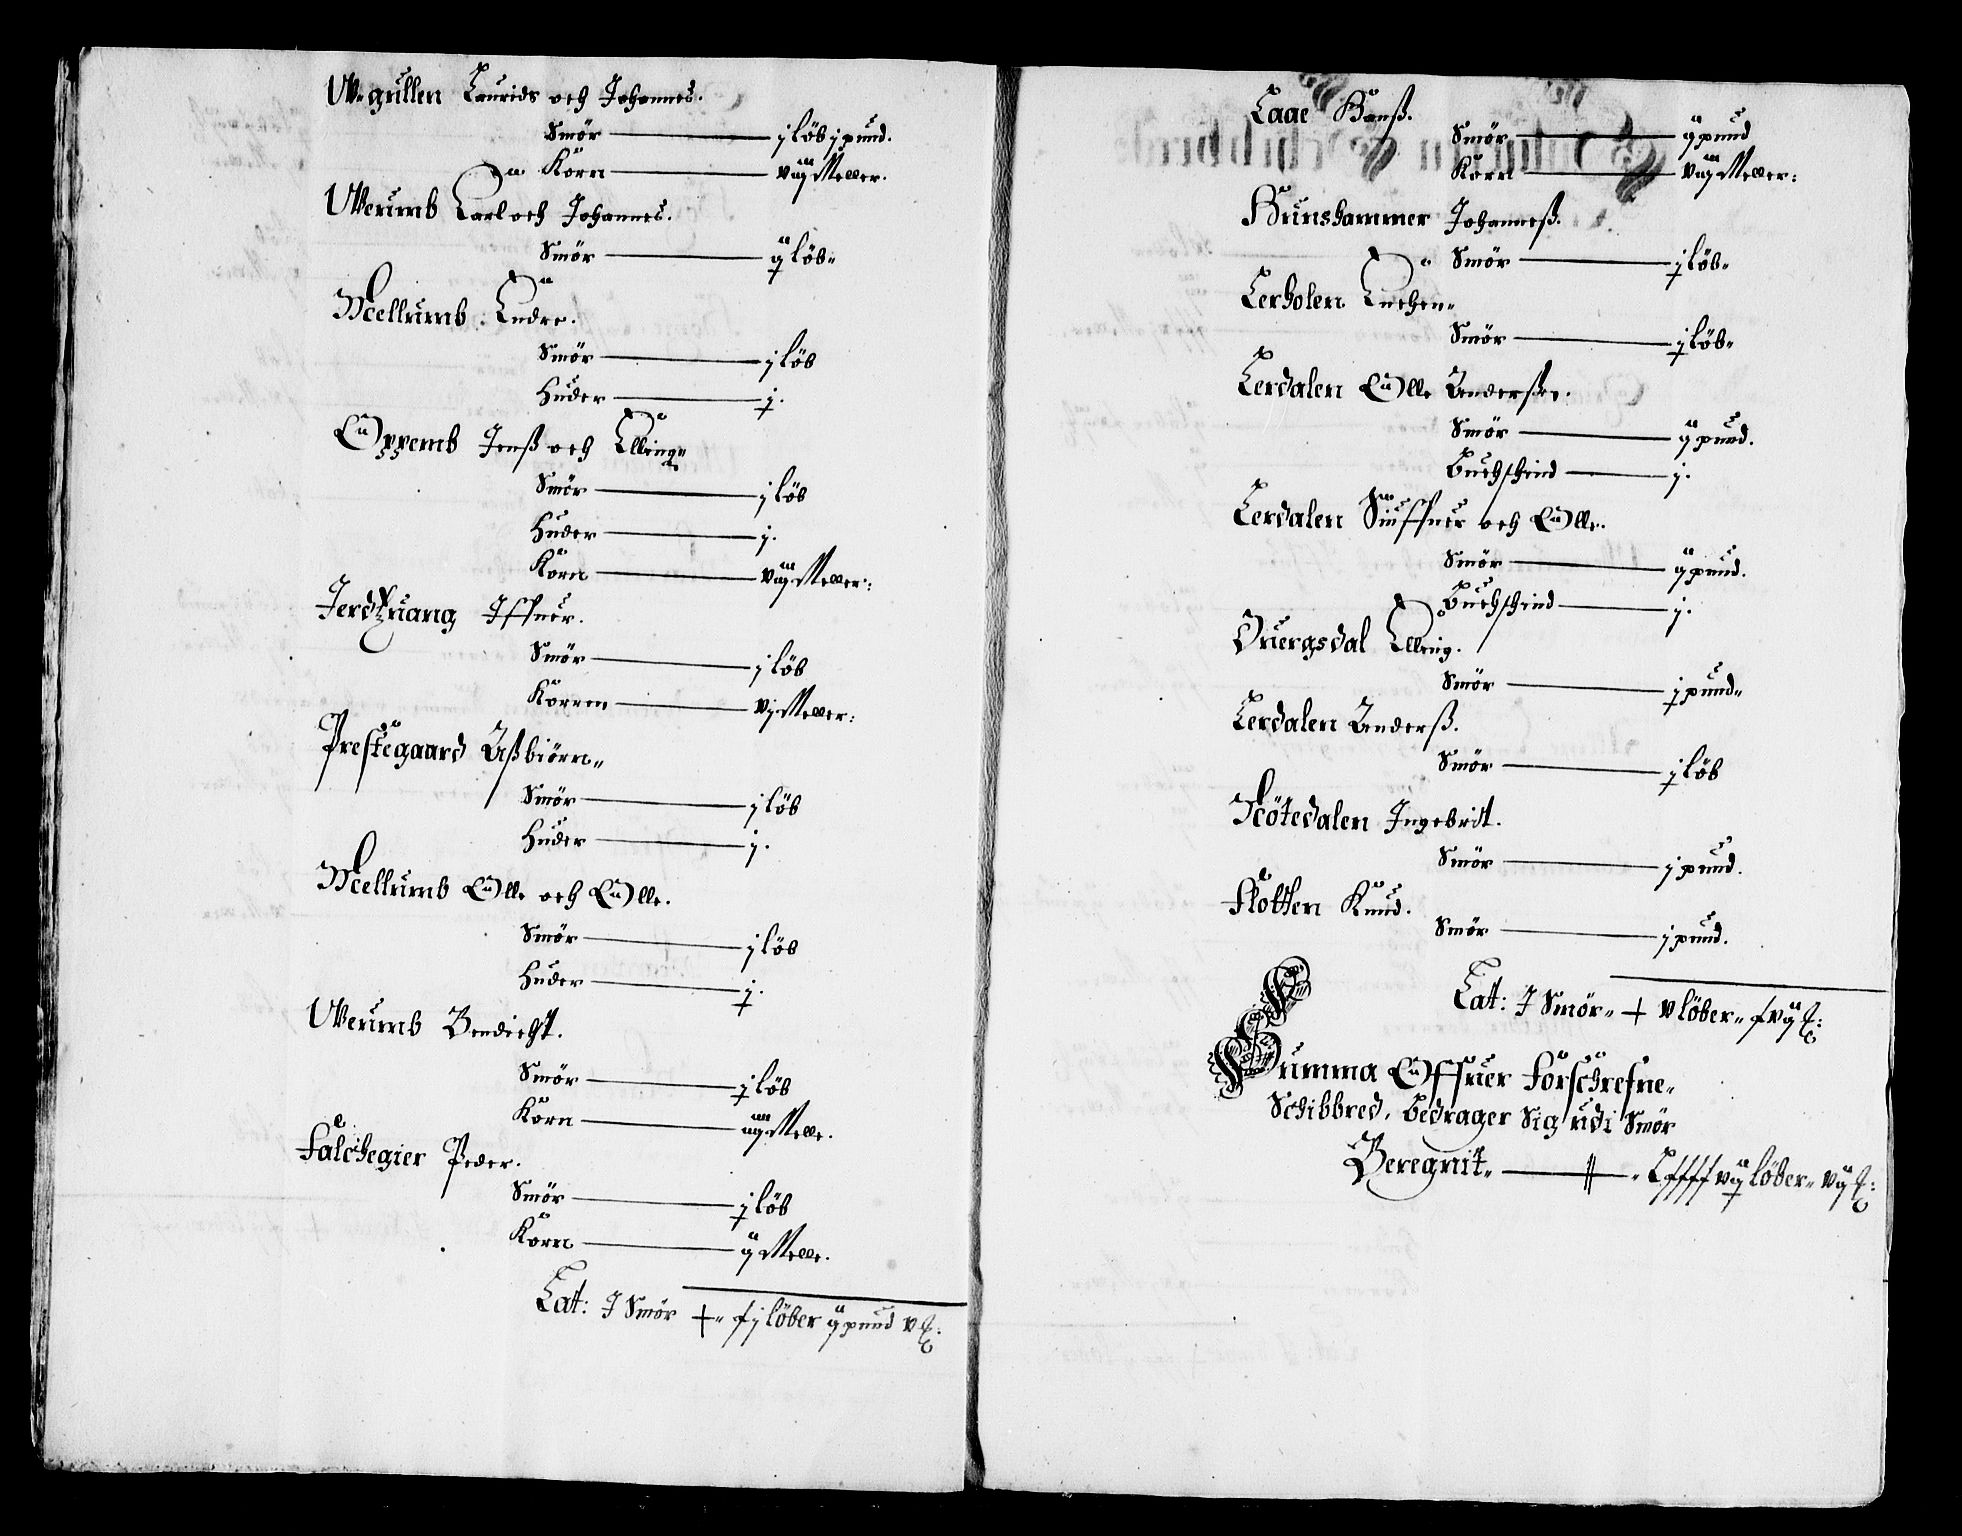 Wgüllen Laurids och Johannes.
Smör — j löb j pund.
Korn — viij Meller.
Werumb Carl och Johannes.
Smör — ij löb
Mellumb Endre.
Smör — j löb
Huder — j.
Oppemb Jenß och Elling
Smör — j löb
Huder — j.
Korn — viij Meller:
Jerdtzuang Iffuer.
Smör — j löb
Korn — vj Meller:
Prestegaard Aßbiörn
Smör — j löb
Huder — j.
Mellumb Olle och Olle.
Smör — j löb
Huder — j.
Werumb Bendicht.
Smör — j löb
Korn — iiij Melle.
Falchegier Peder.
Smör — j löb
Korn — ij Melle.
Lat: J Smör + j löber ij pund v
Laae Hanß.
Smör — ij pund
Korn — viij Meller:
Hunshammer Johanneß.
Smör — j löb
Lerholen
Smör — j löb
Lerdalen Olle Anderßen.
Smör — ij pund.
Buchschind — j.
Lerdalen Siuffuer och Olle.
Smör — ij pund.
Buchschind — j.
Quergsdal Elling.
Smör — j pund
Lerdalen Anderß.
Smör — j löb
Nötedalen Ingebrit.
Smör — j pund.
Flotten Knud.
Smör — j pund.
Lat: J Smör + v löber
Summa Offuer Forschrefne
Schibbred, Bedrager Sig udi Smör
Beregnit — löber